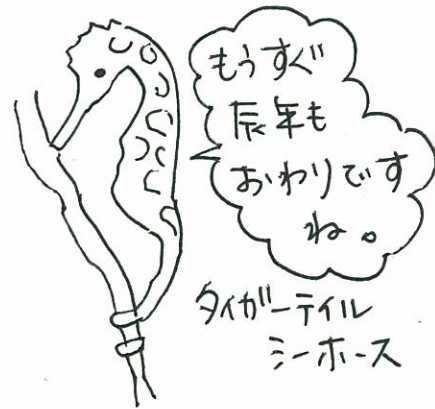 もうすぐ
辰年も
おわりです
ね。
タイガーテイル
シーホース